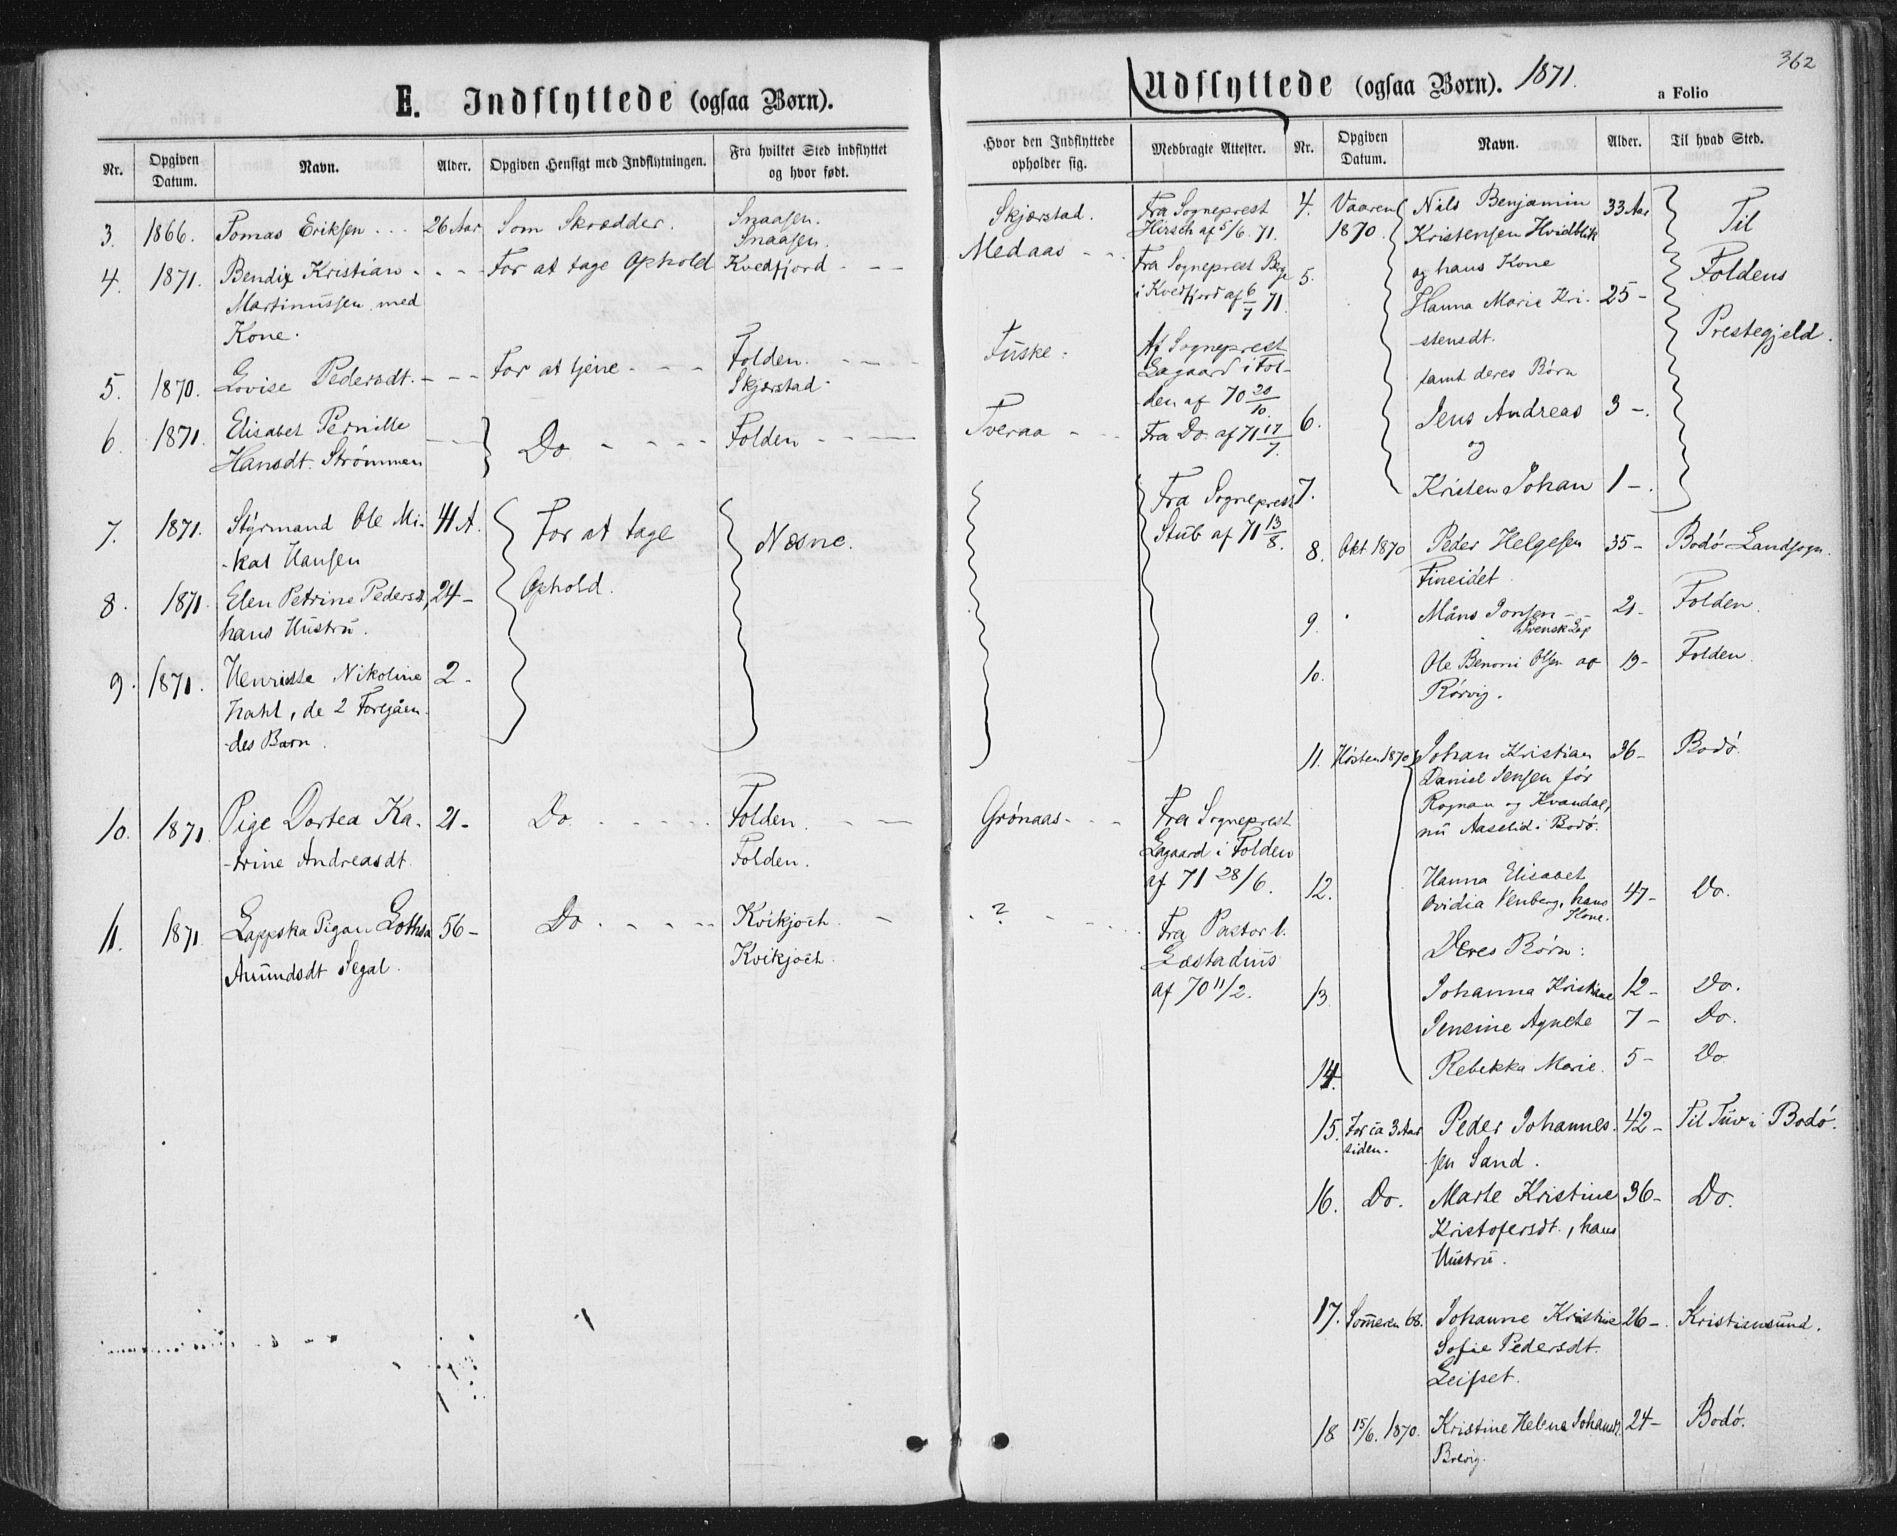 362
E. Indflyttede (ogsaa Børn).
Nr.
Opgiven Datum.
Navn.
Alder.
Opgiven Hensigt med Indflytningen.
Fra hvilket Sted indflyttet og hvor født.
3. 1866. Tomas Eriksen 26 Aar Som Skrædder. Snaasen.
Snaasen.
4. 1871. Bendix Kristian For at tage Ophold Kvedfjord
Martinussen med
Kone.
5. 1870. Lovise Pedersdt. For at tjene Folden.
Skjærstad.
6. 1871. Elisabet Pernille Do Folden
Hansdt. Strømmen
7. 1871. Styrmand Ole Mi- 41 A. For at tage Næsne.
-kal Hansen
8. 1871. Elen Petrine Pedersdt, 24 - Ophold.
hans Hustru.
9. 1871. Nikoline 2 -
de 2 Foregåen-
-des Barn.
10. 1871 Pige Dortea Ka- 21 - Do Folden.
-trine Andreasdt Folden.
11. 1871 Lappska Pigan 56 - Do Kvikjoch.
Amundsdt Segal. Kvikjoch.
Udflyttede (ogsaa Børn). 1871.
a Folio
Hvor den Indflyttede opholder sig.
Medbragte Attester.
Nr.
Opgiven Datum.
Navn.
Alder.
Til hvad Sted.
Skjærstad. Fra Sogneprest
Hirsch af 5/6. 71.
Medaas Fra Sogneprest Berge
i Kvedfjord af 6/7 71.
Fuske. Af Sogneprest
Lagaard i Fol-
-den af 70 20/10.
Tveraa Fra Do af 71 17/7.
Fra Sogneprest
Stub af 71 13/8.
Grønaas Fra Sogneprest
Lagaard i Folden
af 71 28/6.
? Fra Pastor l.
Læstadius
af 70 11/2.
4. Vaaren Nils Benjamin 33 Aar Til
1870. Kristensen Hvidblik
og hans Kone Foldens
5. Hanna Marie Kri- 25 -
-stensdt. Prestegjeld.
samt deres Børn
6. Jens Andreas 3 -.
og
7. Kristen Johan 1 -.
8. Okt 1870 Peder Helgesen 35 - Bodø Landsogn.
Fineidet.
9. Måns Jonsen 21 - Folden.
Svensk Lap
10. Ole Benoni Olsen ao 19 - Folden.
Rørvig.
11. Høsten 1870 Johan Kristian 36 - Bodø.
Daniel Jensen før
Rognan og Kvandal,
nu Aaselid i Bodø.
12. Hanna Elisabet
Ovidia Venberg, hans 47 - Do.
Kone.
Deres Børn:
13. Johanna Kristiane 12 - Do.
Jensine Agnete 7 - Do.
14. Rebekka Marie. 5 - Do
15. For ca 3 Aar Peder Johannes- 42 - Til Tuv i Bodø.
siden. -sen Sand.
16. Do. Marte Kristine 36 - Do.
Kristofersdt., hans
Hustru.
17. Someren 68. Johanne Kristine 26 -. Kristiansund.
Sofie Pedersdt.
Leifset.
18 15/6. 1870. Kristine Helena Johansdt. 24 - Bodø.
Brevig.